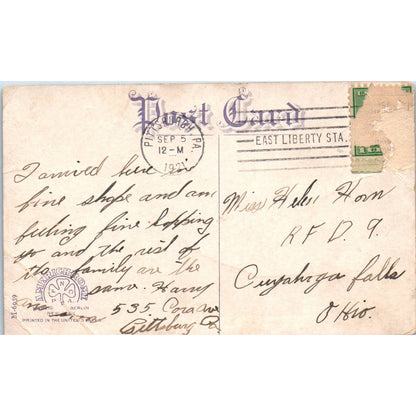 Post Card
PITTSBURGH, PA.
SEP 5
12-M
1921
EAST LIBERTY STA.
I arrived here in
fine shape and am
feeling fine hopping
yo and the rest of
the family are the
same. Harry
535. Cora Ave
Pittsburg Pa
Miss Helen Horn
R F D. 9
Cuyahoga Falls
Ohio.
BERLIN
M-6939
PRINTED IN THE UNITED STATES